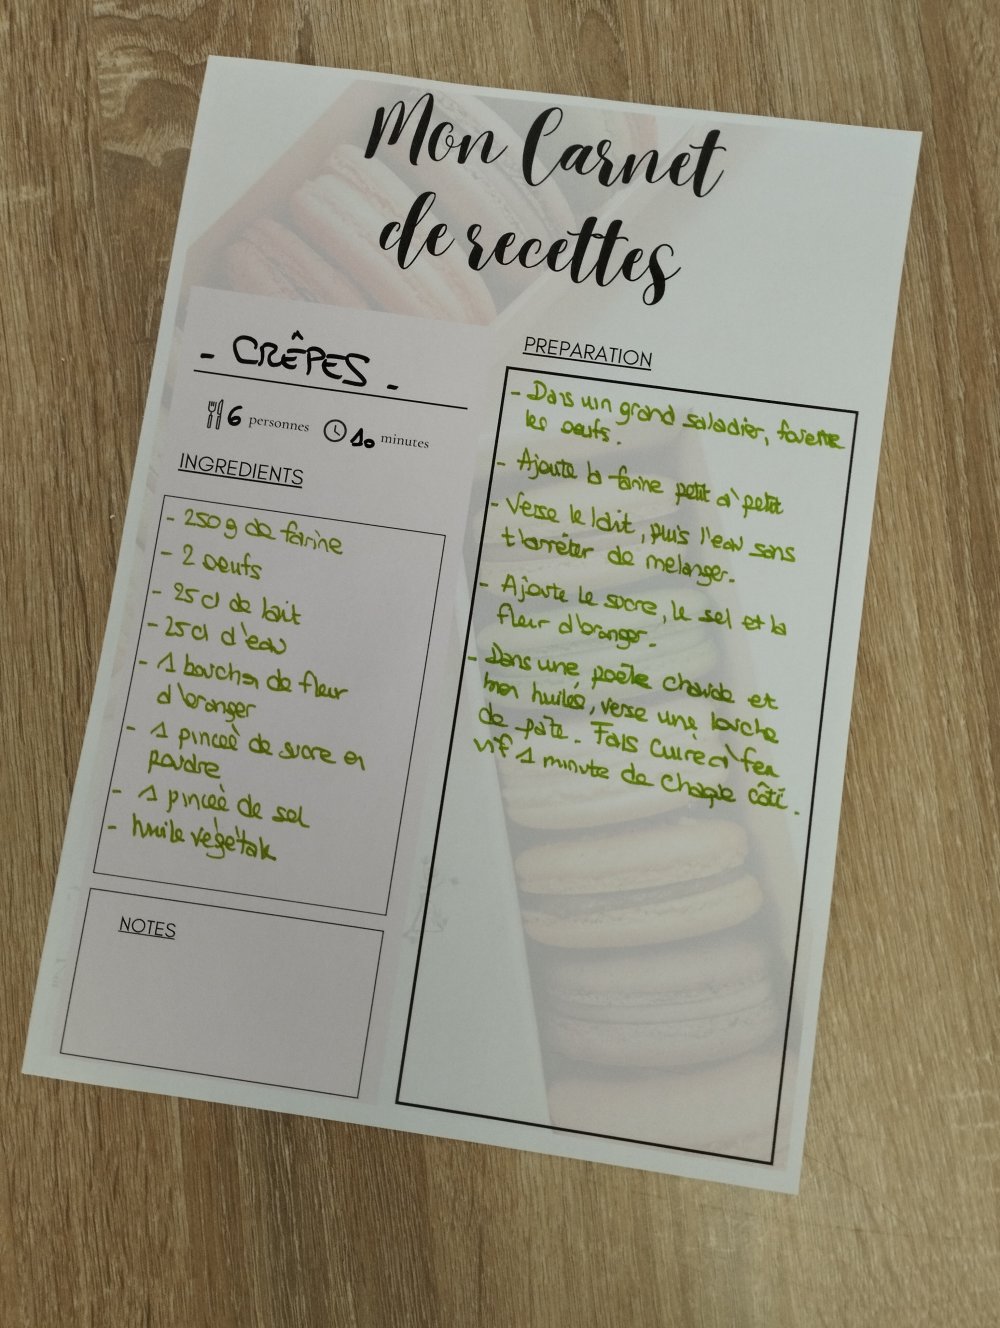 Mon Carnet
de recettes
- CRÊPES -
6 personnes 10 minutes
INGREDIENTS
- 250 g de farine
- 2 oeufs
- 25 cl de lait
- 25 cl d'eau
- 1 bouchon de fleur
d'oranger
- 1 pinceè de sucre en
poudre
- 1 pinceè de sel
- huile végétale
NOTES
PREPARATION
- Dans un grand saladier, fouette
les oeufs.
- Ajoute la farine petit à petit
- Verse le lait, puis l'eau sans
t'arrêter de melanger.
- Ajoute le sucre, le sel et la
fleur d'oranger.
- Dans une poêle chaude et
bien huilée, verse une louche
de pâte. Fais cuire à feu
vif 1 minute de chaque côté.